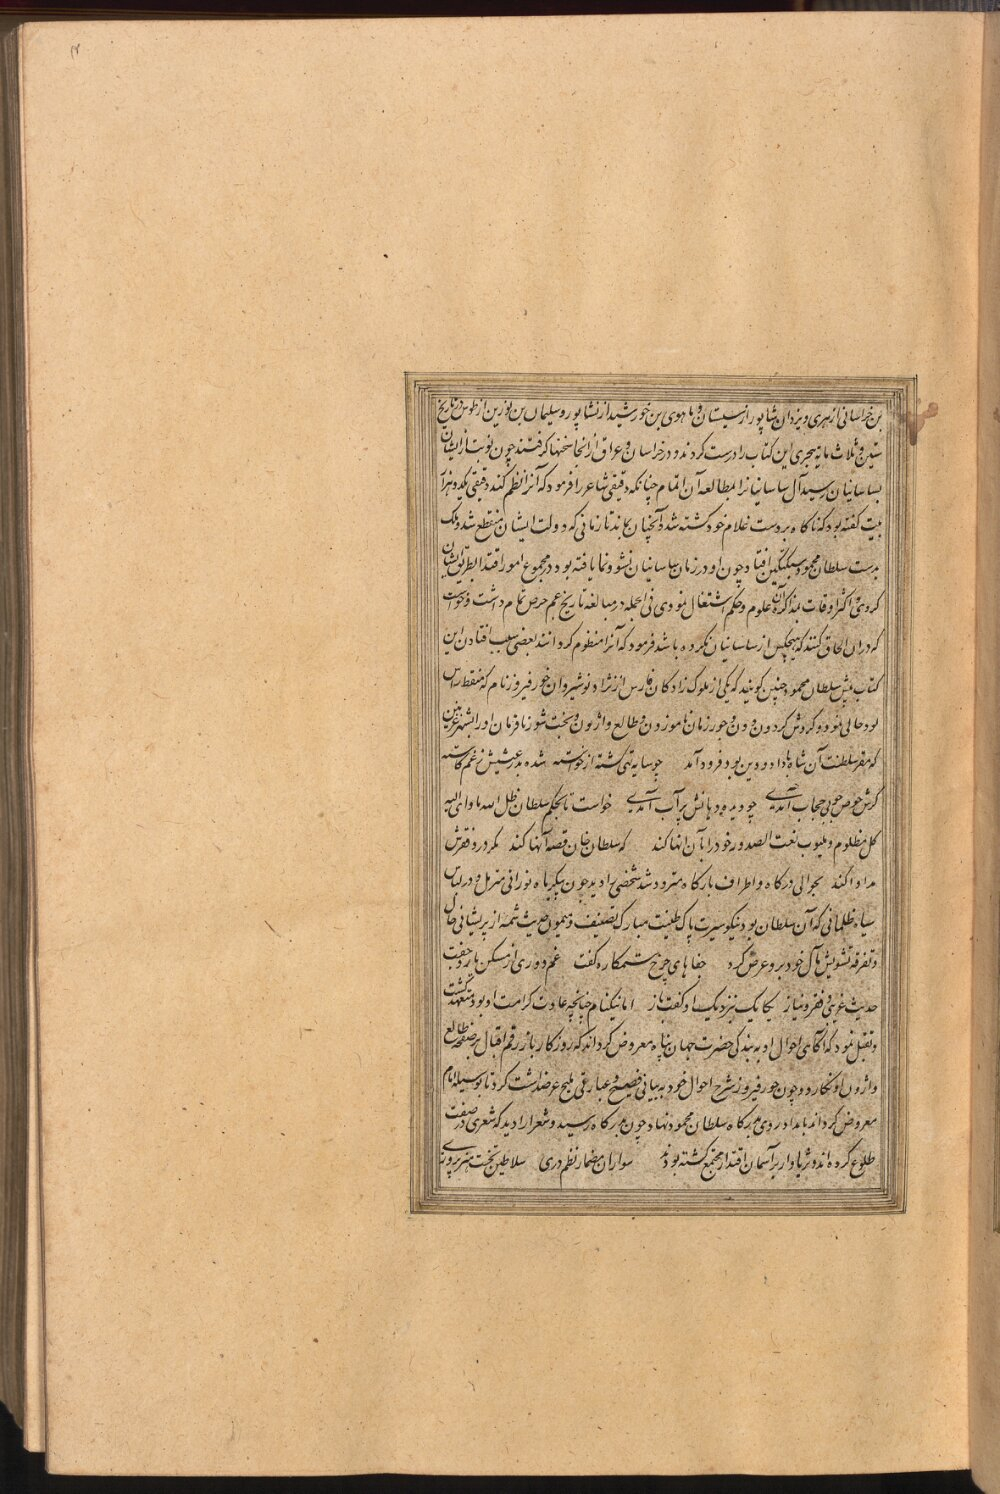 بن خراسانی از هری و یزدان شاپور از سیستان و ماهوی بن خورشید از نشاپور و سلیمان بن نوزین از طوس در تاریخ
ستین و ثلاث مایه هجری این کتاب را درست کردند و در خراسان و عراق از آنجا نسخها کرفتند چون نوبت از ایشان
بساسانیان رسید آل ساسانیانرا بمطالعه آن التمام چنانکه دقیقی شاعر را فرمود که آنرا نظم کند دقیقی یکدو هزار
بیت کفته بود که ناکاه بر دست غلام خود کشته شد آنچنان بماند تا زمانی که دولت ایشان منقطع شد و ملک
بدست سلطان محمود سبکتکین افتاد و چون او در زمان ساسانیان نشو و نما یافته بود در مجموع امور اقتدا بطریق ایشان
کردی و اکثر اوقات بمذاکره علوم و حکم اشتغال نمودی فی الجمله در مبالغه تاریخ عجم حرص تمام داشت و خواست
که در ان الحاق کنند که هیچکس از ساسانیان نکرده باشد فرمود که آنرا منظوم کردانند بعضی سبب افتادن این
کتاب پیش سلطان محمود چنین کویند که یکی از ملوک زادکان فارس از نژاد نوشیروان خور فیروز نام که مسقط راس
او د حالی نمود و کردش کردون دون و جور زمانه ناموزون و طالع واژون و بخت شور نافرمان او را بشهر غزنین
که مقر سلطنت آن شاه با داد و دین بود فرود آمد چو سایه تهی کشته از خواسته شده بدر عیشش ز غم کاسته
کرش حرص جوئی حجاب آمدی چو دیده دهانش پر آب آمدی خواست تا بحکم سلطان ظل الله ماوای الیه
کل مظلوم و ملهوف نفث الصدوره خود را بآن انها کند که سلطان خان قصه آنها کند مکر درد فقرش
مداوا کند بحوالی درکاه و اطراف بارکاه متردد شد شخصی را دید چون پیکر ماه نورانی متزمل در لباس
سیاه ظلمانی که آن سلطان بود نیکو سیرت پاک طینت مبارک تصنیف و میمون حدیث شمه از پریشانی حال
و تفرقه تشویش مآل خود بر و عرض کرد جفاهای چرخ ستمکاره کفت غم دوری از مسکن یار و جفت
حدیث غریبی و فقر و نیاز یکایک بنزدیک او کفت باز اما نیکنام چنانچه عادت کرامت او بود متعهد کشت
و تقبل نمود که آکاهی احوال او به بندکی حضرت جهان پناه معروض کرداند که روزکار باز رقم اقبال بر صفحه طالع
واژون او نکارد و چون خور فیروز شرح احوال خود به بیانی فصیح و عبارتی ملیح عرضه داشت کرد تا بوسیله امام
معروض کرداند بامداد روی بدرکاه سلطان محمود نهاد چون بدرکاه رسید و شعرا را دید که شعری در صفت
طلوع کرده اند و ثریا وار بر آسمان اقتدار مجتمع کشته بودند سواران مضمار نظم دری سلاطین تخت هنرپروری